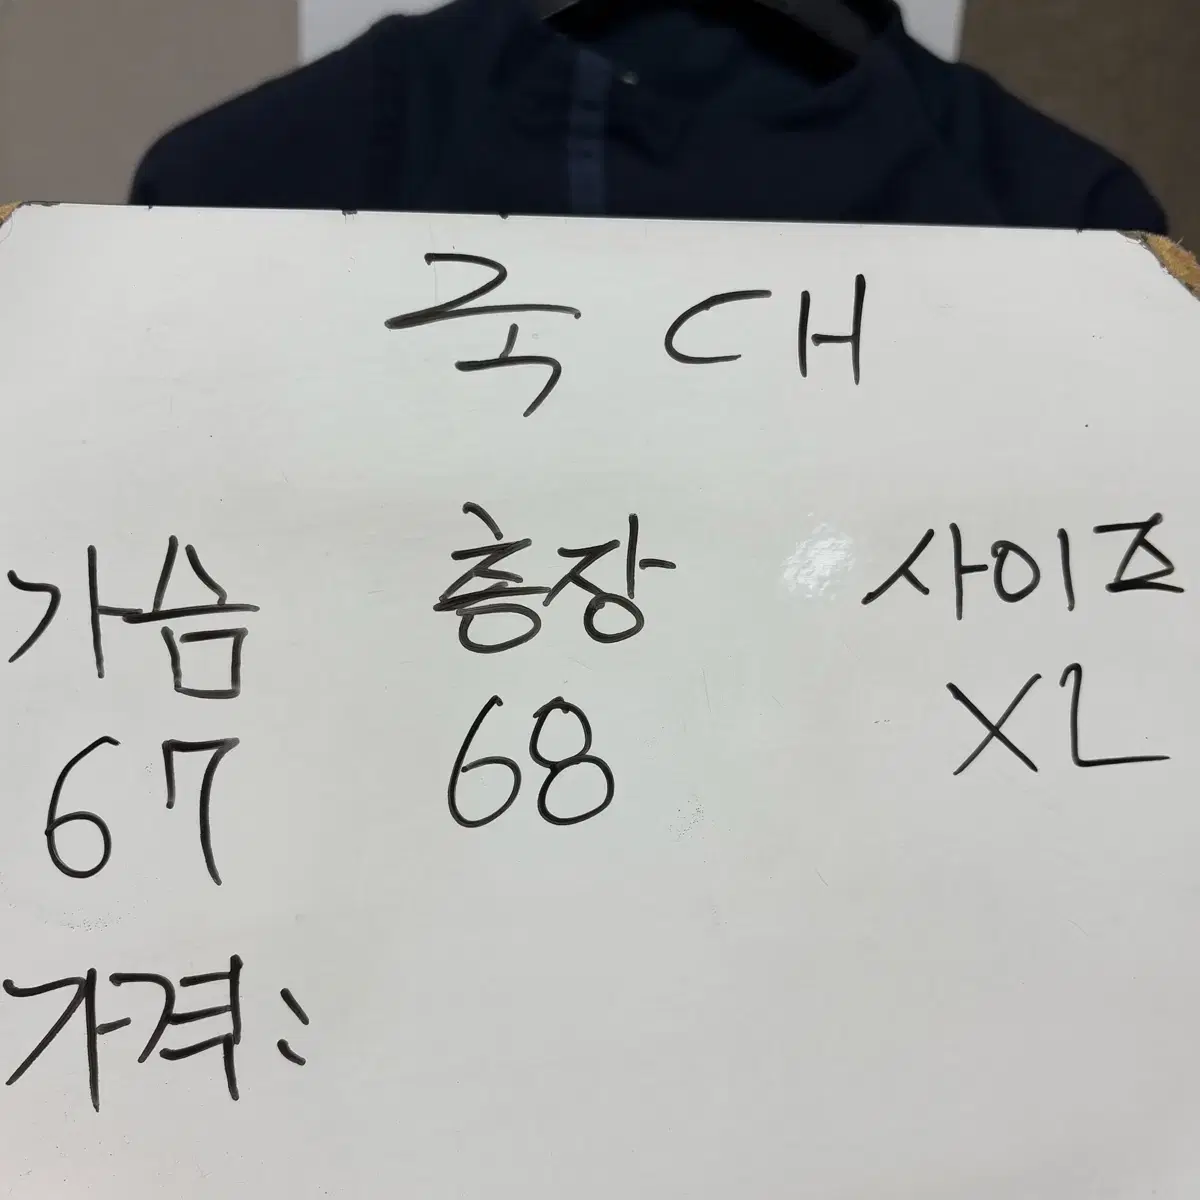 국 대
가슴 총장 사이즈
67 68 XL
가격: